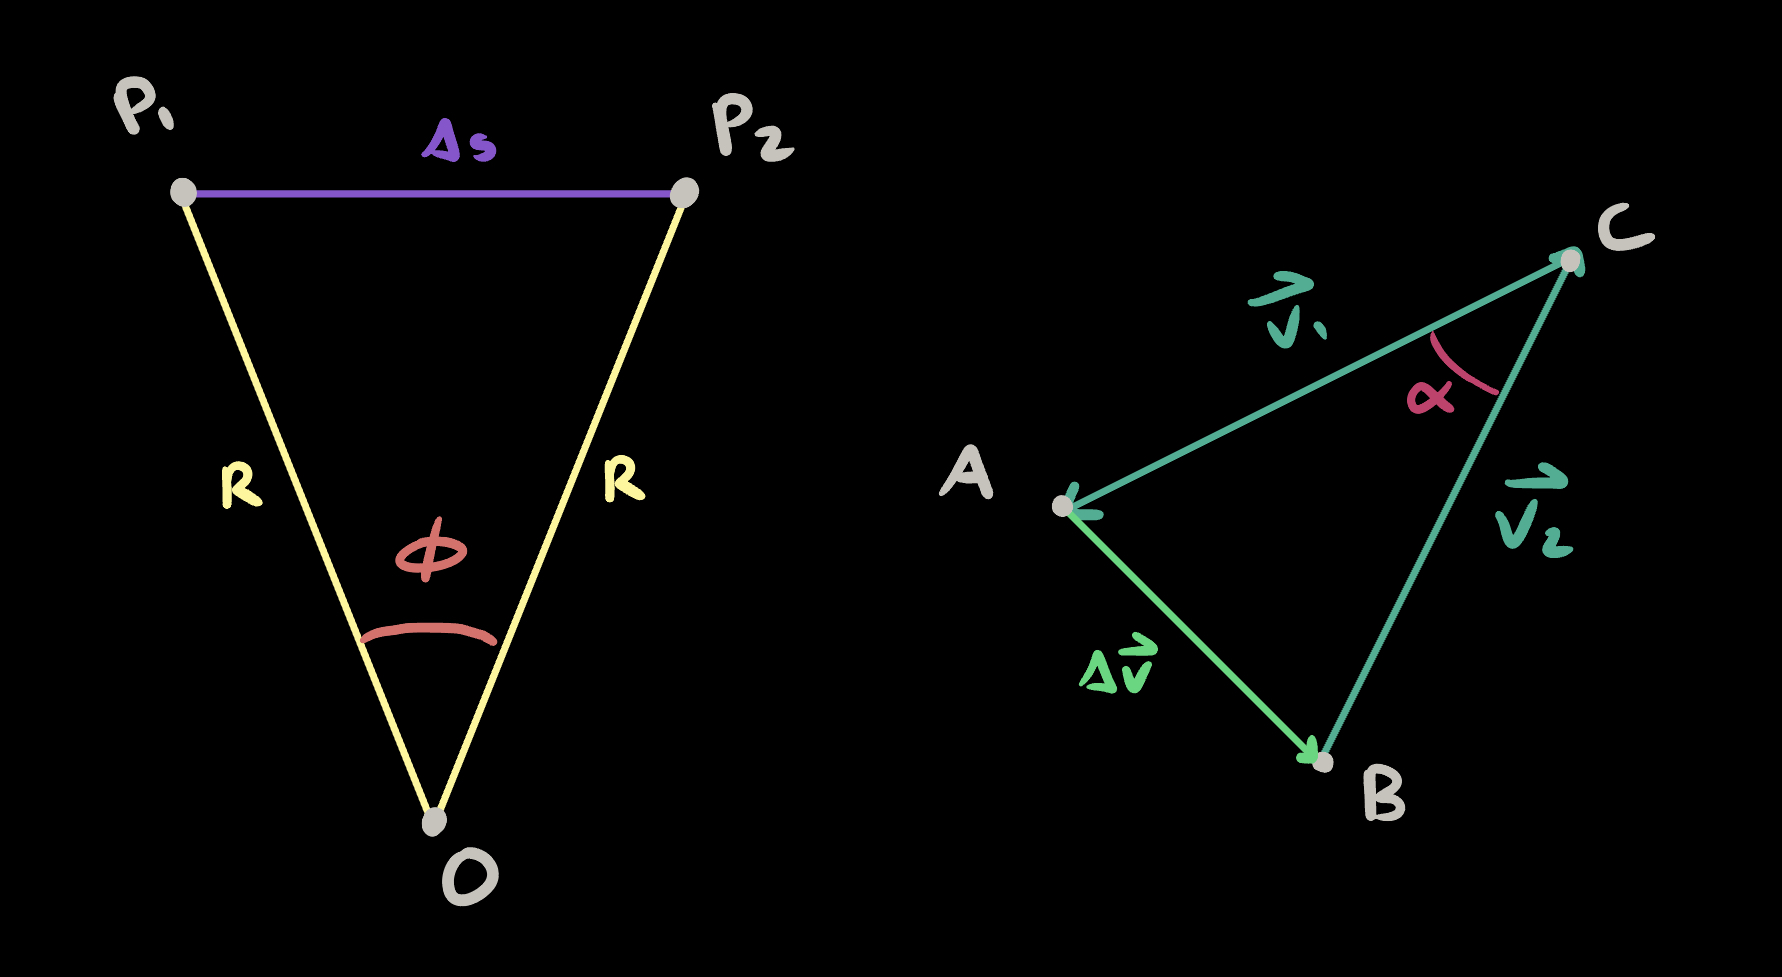 P₁
Δs
P₂
R
R
ϕ
O
C
v⃗₁
α
A
v⃗₂
Δv⃗
B